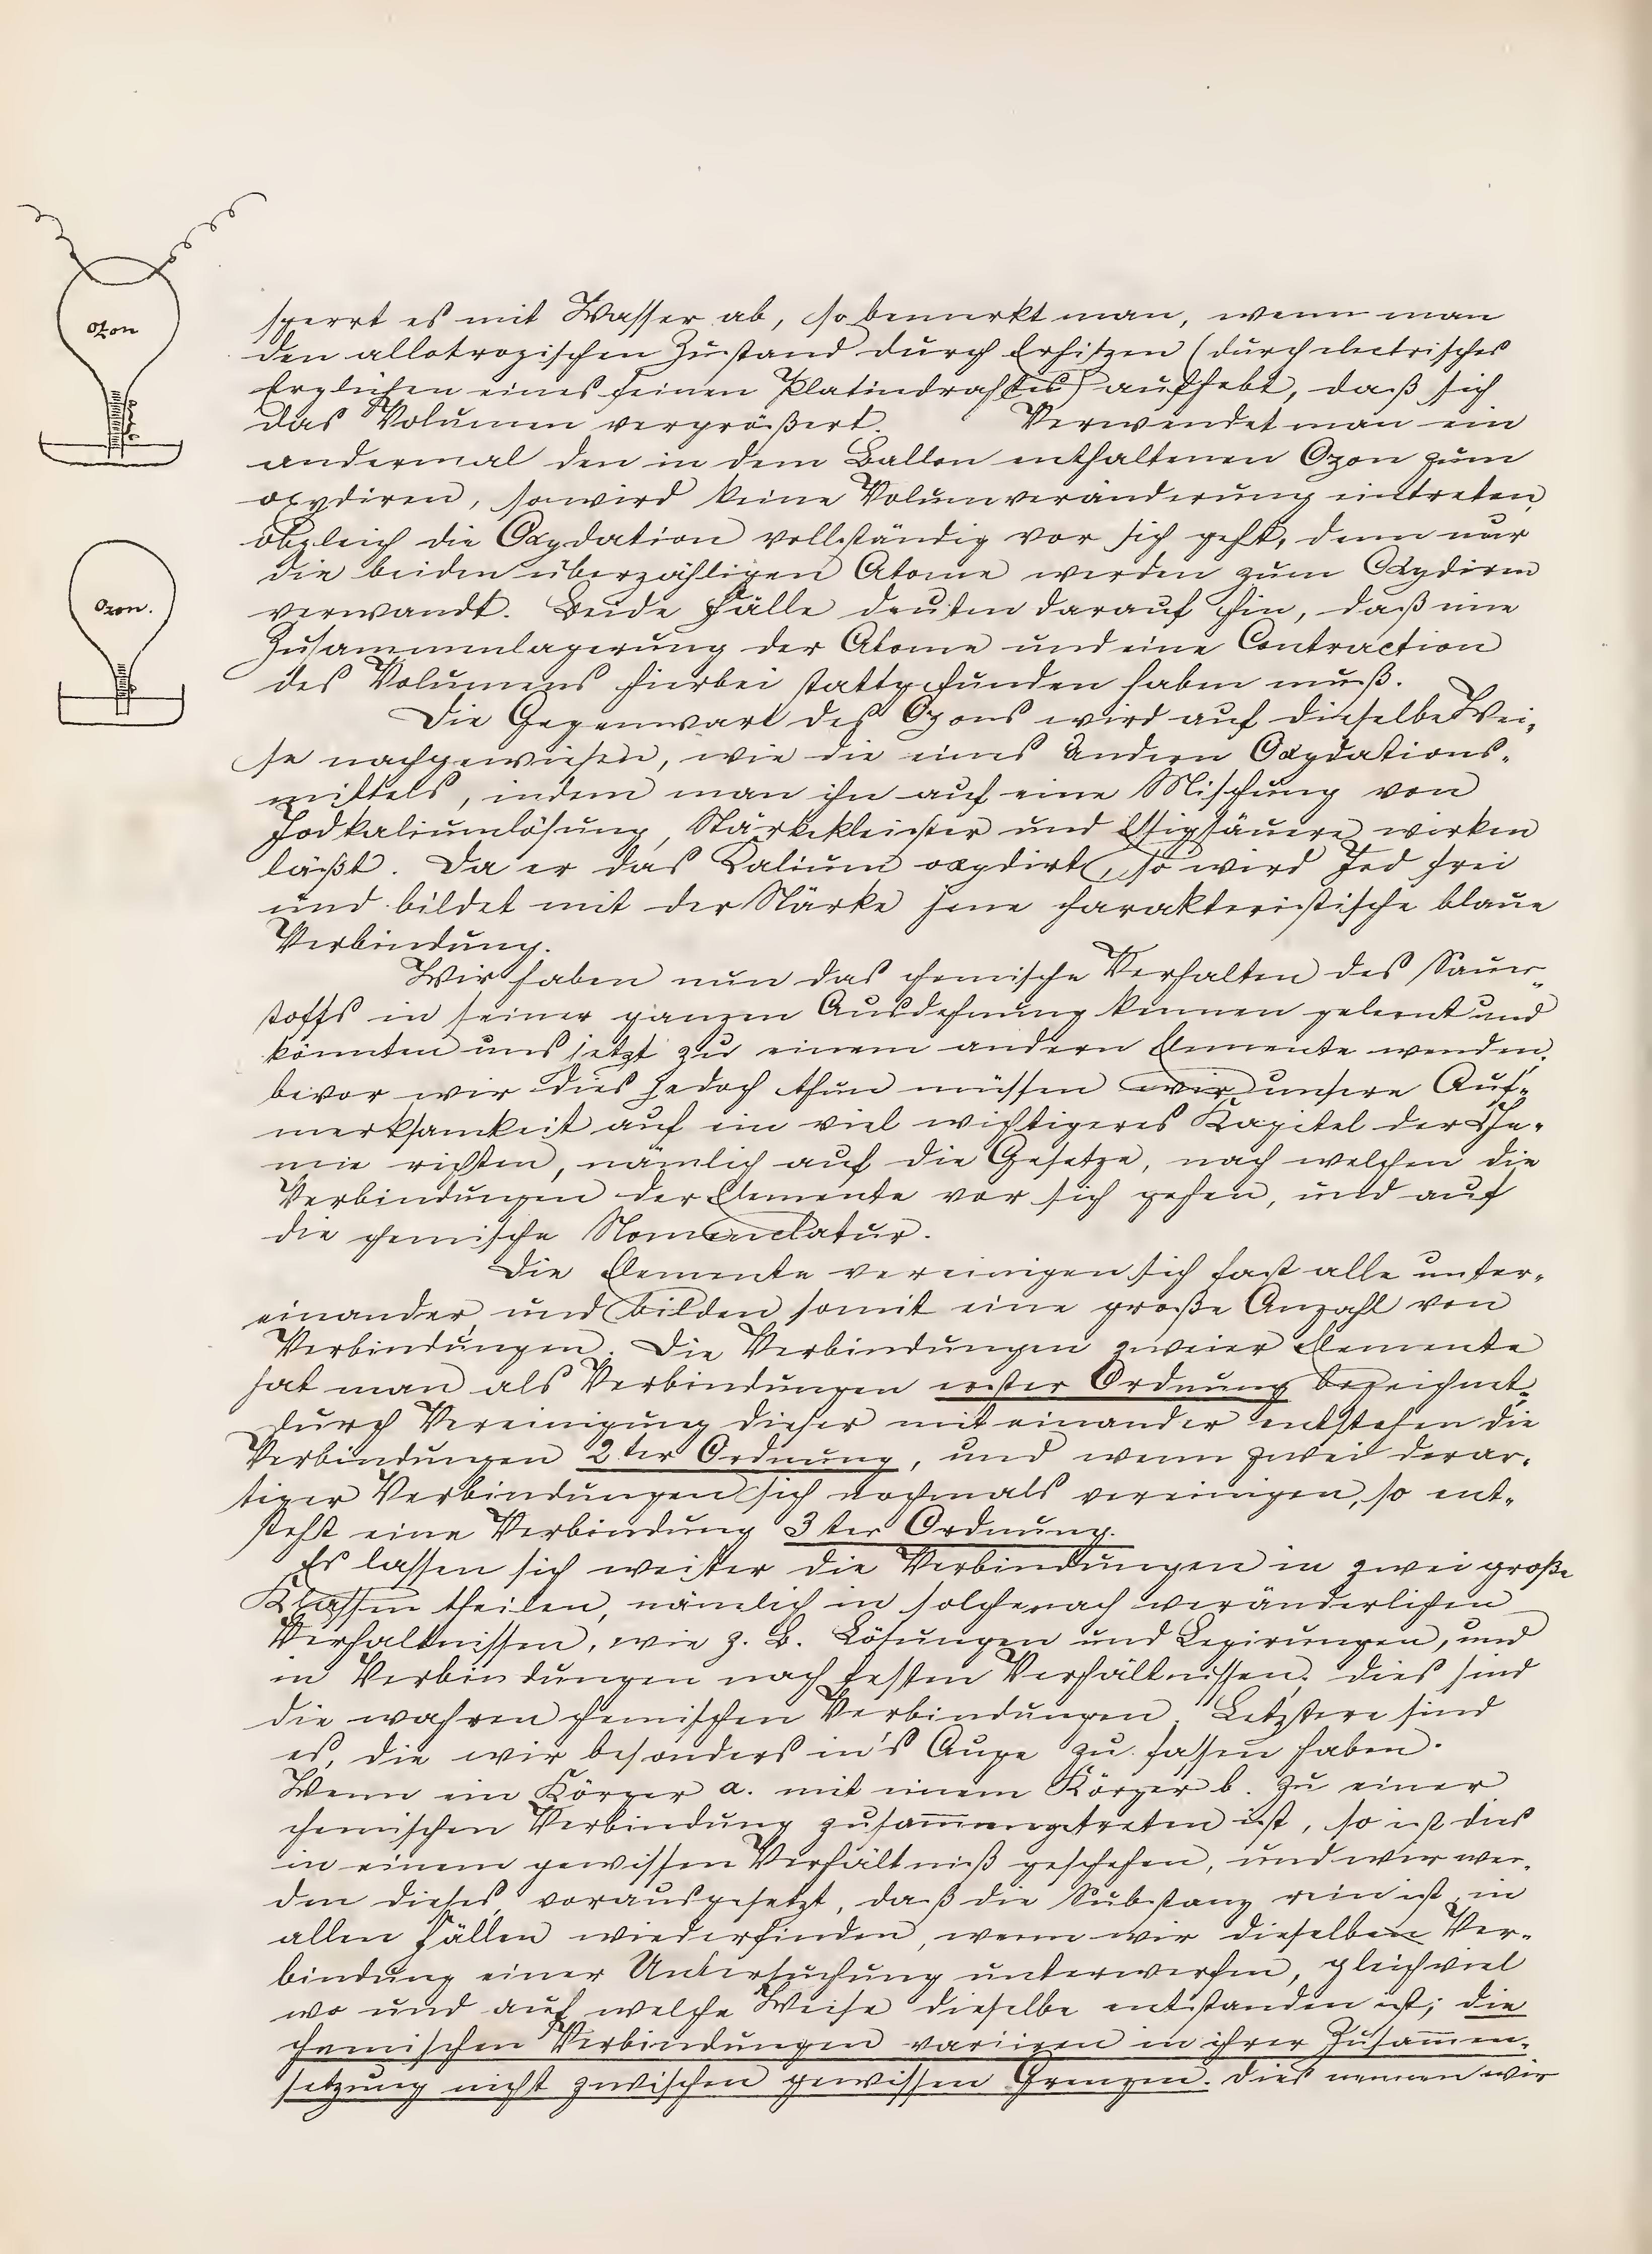 Ozon
Ozon.
sperrt es mit Wasser ab, so bemerkt man, wenn man
den allotropischen Zustand durch Erhitzen (durch electrisches
Erglühen eines feinen Platindrahtes) aufhebt, daß sich
das Volumen vergrößert. Verwendet man ein
andermal den in dem Ballon enthaltenen Ozon zum
oxydiren, so wird keine Volumveränderung eintreten,
obgleich die Oxydation vollständig vor sich geht, denn nur
die beiden überzähligen Atome werden zum Oxydiren
verwandt. Beide Fälle deuten darauf hin, daß eine
Zusammenlagerung der Atome und eine Contraction
des Volumens hierbei stattgefunden haben muß.
Die Gegenwart des Ozons wird auf dieselbe Wei-
se nachgewiesen, wie die eines andern Oxydations-
mittels, indem man ihn auf eine Mischung von
Jodkaliumlösung, Stärkekleister und Essigsäuere wirken
läßt. Da er das Kalium oxydirt, so wird Jod frei
und bildet mit der Stärke jene charakteristische blaue
Verbindung.
Wir haben nun das chemische Verhalten des Sauer-
stoffs in seiner ganzen Ausdehnung kennen gelernt und
könnten uns jetzt zu einem andern Elemente wenden,
bevor wir dies jedoch thun müssen wir unsere Auf-
merksamkeit auf ein viel wichtigeres Kapitel der Che-
mie richten, nämlich auf die Gesetze, nach welchen die
Verbindungen der Elemente vor sich gehen, und auf
die chemische Nomenclatur.
Die Elemente vereinigen sich fast alle unter-
einander und bilden somit eine große Anzahl von
Verbindungen. Die Verbindungen zweier Elemente
hat man als Verbindungen erster Ordnung bezeichnet,
durch Vereinigung dieser mit einander entstehen die
Verbindungen 2ter Ordnung, und wenn zwei derar-
tiger Verbindungen sich nochmals vereinigen, so ent-
steht eine Verbindung 3ter Ordnung.
Es lassen sich weiter die Verbindungen in zwei große
Klassen theilen, nämlich in solche nach veränderlichen
Verhältnissen, wie z. B. Lösungen und Legirungen, und
in Verbindungen nach festen Verhältnissen; dies sind
die wahren chemischen Verbindungen. Letztere sind
es, die wir besonders in's Auge zu fassen haben.
Wenn ein Körper a. mit einem Körper b. zu einer
chemischen Verbindung zusam̅mengetreten ist, so ist dies
in einem gewissen Verhältniß geschehen, und wir wer-
den dieses, vorausgesetzt, daß die Substanz rein ist, in
allen Fällen wiederfinden, wenn wir dieselben Ver-
bindung einer Untersuchung unterwerfen, gleichviel
wo und auf welche Weise dieselbe entstanden ist; die
chemischen Verbindungen variiren in ihrer Zusam̅men-
setzung nicht zwischen gewissen Grenzen. Dies nennen wir